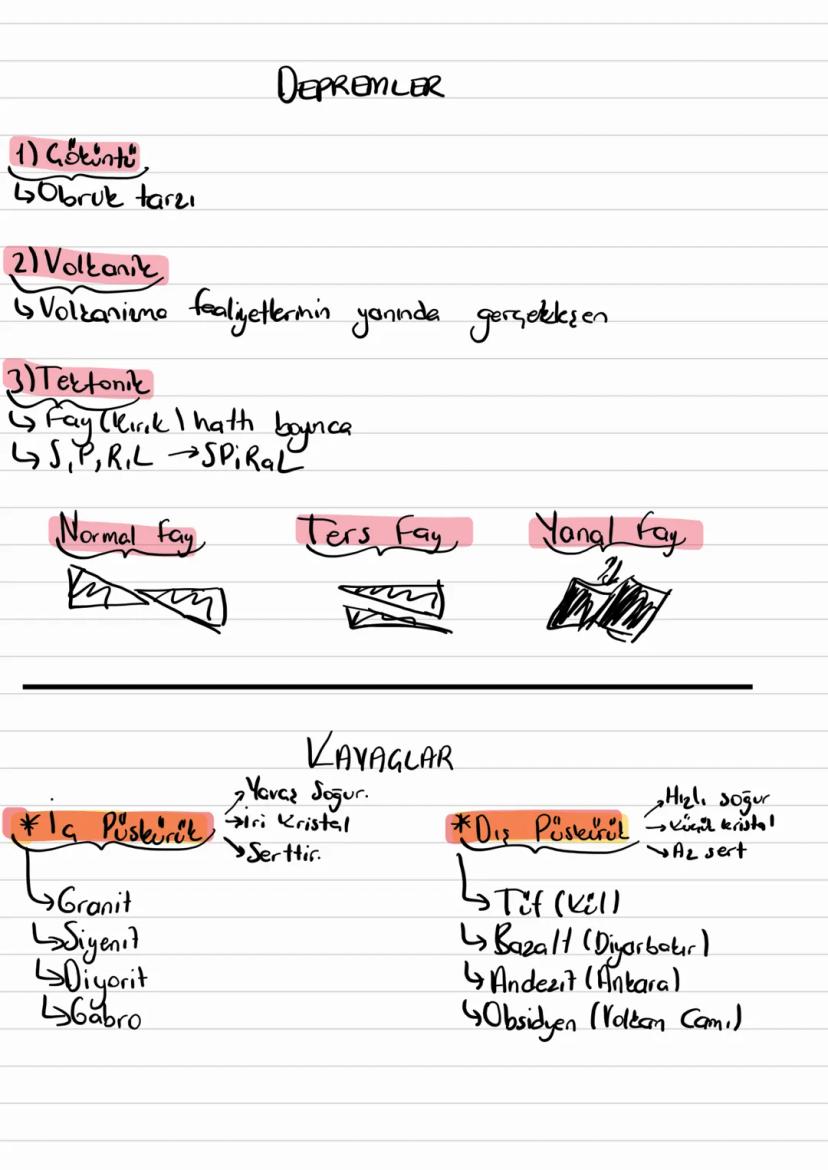 DEPREMLER
1) Çöküntü
↳ Obruk tarzı
2) Volkanik
↳ Volkanizma faaliyetlerinin yanında gerçekleşen
3) Tektonik
↳ Fay (Kırık) hattı boyunca
↳ S, P, R, L → SPiRaL
Normal Fay Ters Fay Yanal Fay
KAYAÇLAR
* İç Püskürük
→ Yavaş Soğur.
→ İri Kristal
→ Serttir.
↳ Granit
↳ Siyenit
↳ Diyorit
↳ Gabro
* Dış Püskürük
→ Hızlı soğur
→ Küçük kristal
→ Az sert
↳ Tüf (Kül)
↳ Bazalt (Diyarbakır)
↳ Andezit (Ankara)
↳ Obsidyen (Volkan Camı)